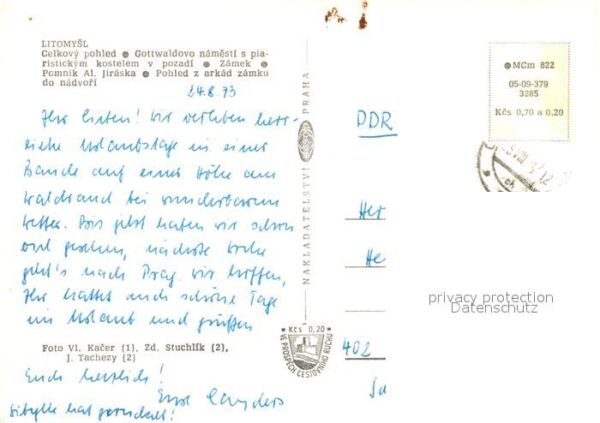 LITOMYŠL
Celkový pohled ● Gottwaldovo náměstí s pia-
ristickým kostelem v pozadí ● Zámek ●
Pomník Al. Jiráska ● Pohled z arkád zámku
do nádvoří
24.8.73
Ihr Lieben! Wir verleben herr-
liche Urlaubstage in einer
Baude auf einer Höhe am
Waldrand bei wunderbarem
Wetter. Bis jetzt haben wir schon
viel gesehen, nächste Woche
geht's nach Prag. Wir hoffen,
Ihr hattet auch schöne Tage
im Urlaub und grüßen
Foto Vl. Kačer (1), Zd. Stuchlík (2),
J. Tachezy (2)
Euch herzlich!
Eure
Sibylle hat
NAKLADATELSTVÍ PRAHA
Kčs 0,20
VE PROSPĚCH CESTOVNÍHO RUCHU
● MCm 822
05-09-379
3285
Kčs 0,70 a 0,20
DDR
Her
He
402
privacy protection
Datenschutz